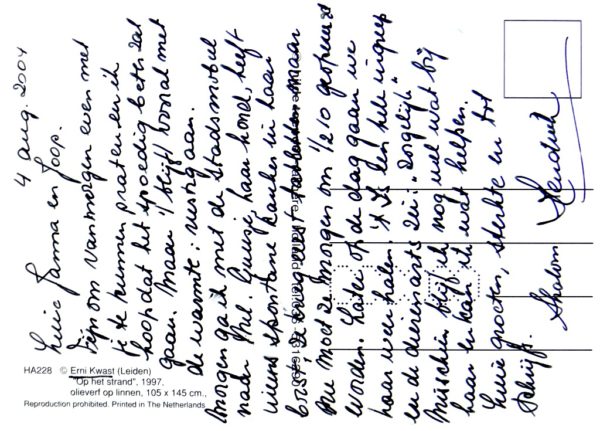 4 aug. 2004
Lieve Janna en Joop.
Fijn om vanmorgen even met
je te kunnen praten en ik
hoop dat het spoedig beter zal
gaan. Maar 't blijft vooral met
de warmte: rustig aan.
Morgen ga ik met de Stadsmobiel
naar Guusje, haar hond, heeft
ineens spontane kanker in haar
borst, maar
nu moet ze morgen om 1/2 10 geopereerd
worden. Later op de dag gaan we
haar weer halen. 't Is een hele ingreep
en de dierenarts zei: "zorgelijk"
Misschien blijf ik nog wel wat bij
haar en kan ik wat helpen.
Lieve groeten, sterkte en tot
schrijfs. Shalom
HA228 © Erni Kwast (Leiden)
"Op het strand", 1997,
olieverf op linnen, 105 x 145 cm.,
Reproduction prohibited. Printed in The Netherlands